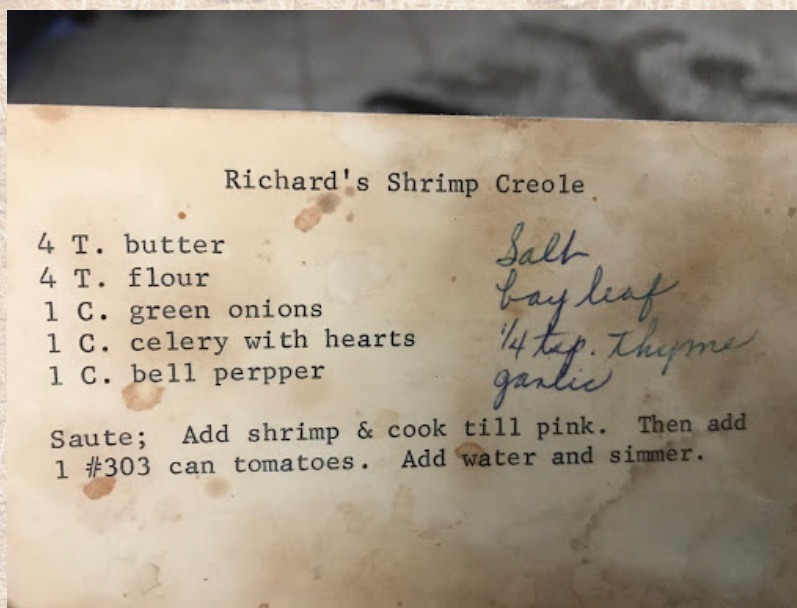 Richard's Shrimp Creole
4 T. butter
4 T. flour
1 C. green onions
1 C. celery with hearts
1 C. bell perpper
Salt
bay leaf
1/4 tsp. thyme
garlic
Saute;  Add shrimp & cook till pink.  Then add
1 #303 can tomatoes.  Add water and simmer.